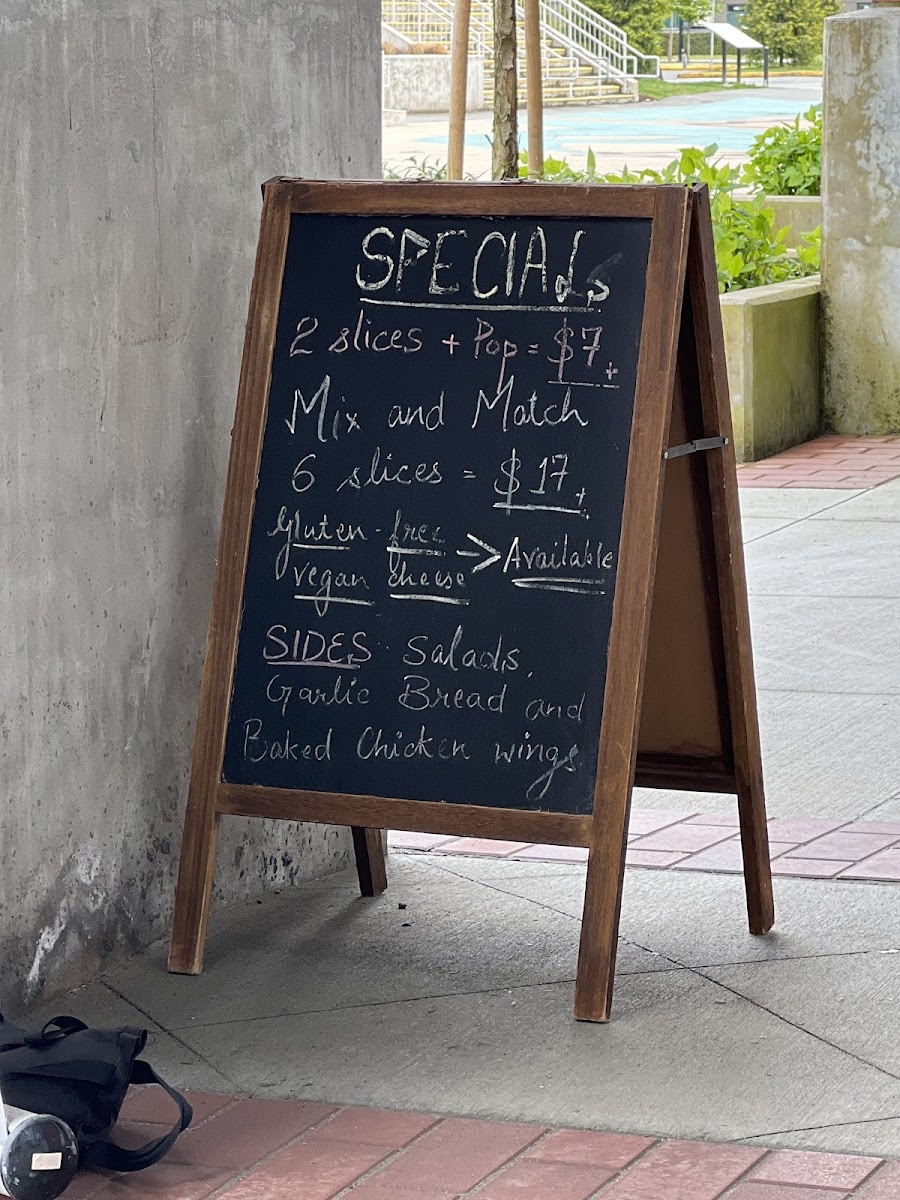 SPECIALS
2 slices + Pop = $7+
Mix and Match
6 slices = $17+
Gluten-free
vegan cheese > Available
SIDES: Salads,
Garlic Bread and
Baked Chicken wings